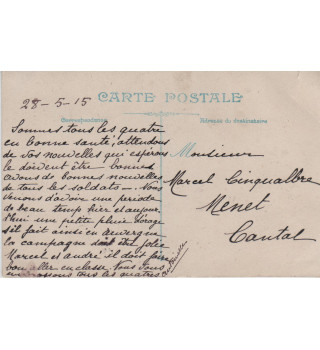 28-5-15
CARTE POSTALE
Correspondance
Adresse du destinataire
Sommes tous les quatre
en bonne santé, attendons
de vos nouvelles qui espérons
le doivent être bonnes
avons de bonnes nouvelles
de tous les soldats - Nous
venons d'avoir une période
de beau temp hier et aujour
d'hui une petite pluie d'orage
s'il fait ainsi en Auvergne
la campagne doit être jolie
Marcel et andré il doit faire
bon aller en classe. Nous vous
embrassons tous les quatres
Monsieur
Marcel Cinqualbre
Menet
Cantal